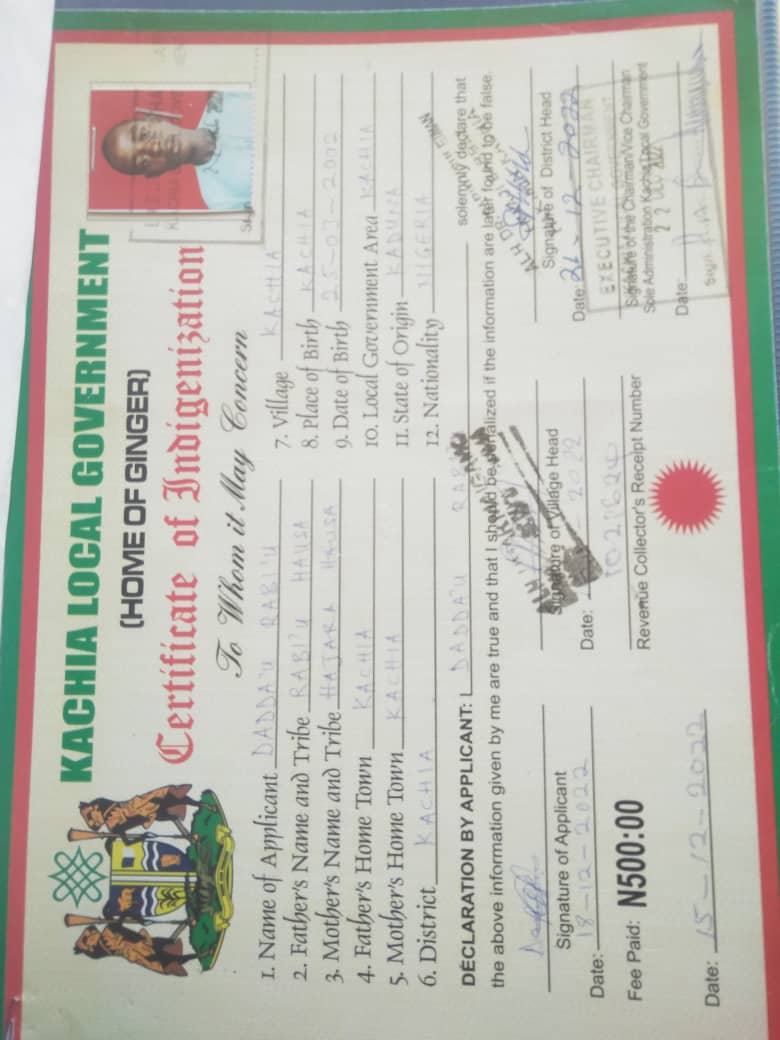 KACHIA LOCAL GOVERNMENT
(HOME OF GINGER)
Certificate of Indigenization
To Whom it May Concern
1. Name of Applicant DADDA'U RABI'U
2. Father's Name and Tribe RABI'U HAUSA
3. Mother's Name and Tribe HAJARA HAUSA
4. Father's Home Town KACHIA
5. Mother's Home Town KACHIA
6. District KACHIA
7. Village KACHIA
8. Place of Birth KACHIA
9. Date of Birth 25-03-2002
10. Local Government Area KACHIA
11. State of Origin KADUNA
12. Nationality NIGERIA
DECLARATION BY APPLICANT: I, DADDA'U RABI'U solemnly declare that
the above information given by me are true and that I should be penalized if the information are later found to be false.
Signature of Applicant
Date: 18-12-2022
Signature of Village Head
Date: 2022
Signature of District Head
Date: 21-12-2022
Fee Paid: N500:00
Revenue Collector's Receipt Number
EXECUTIVE CHAIRMAN
Signature of the Chairman/Vice Chairman
Sole Administration Kachia Local Government
22 DEC 2022
Date:
Sign.
Date: 15-12-2022